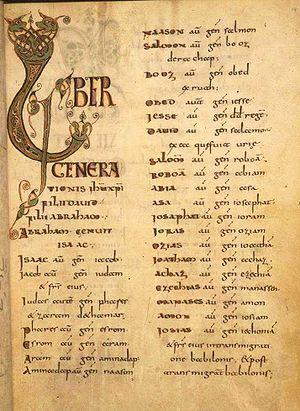 LIBER
GENERA
TIONIS IHU XPI
FILII DAUID
FILII ABRAHAM
ABRAHAM GENUIT
ISAAC
ISAAC aū gen̄ iacob
Iacob aū gen̄ iudam
& fr̄s eius
Iudas autē gen̄ phares
& zaram de thamar
Phares aū gen̄ esrom
Esrom aū gen̄ aram
Aram aū gen̄ aminadap
Aminadap aū gen̄ naason
NAASON aū gen̄ salmon
SALMON aū gen̄ booz
de rachab
BOOZ aū gen̄ obed
ex ruth
OBED aut̄ gen̄ iesse
IESSE aū gen̄ dd regē
DAUID aū gen̄ salomo
ex ea que fuit urie
SALOMO aū gen̄ roboā
ROBOĀ aū gen̄ abiam
ABIA aū gen̄ asa
ASA aū gen̄ iosaphat
IOSAPHAT aū gen̄ ioram
IORAS aū gen̄ oziam
OZIAS aū gen̄ ioatha
IOATHAM aū gen̄ achaz
ACHAZ aū gen̄ ezechiā
EZECHIAS aū gen̄ manassen
MANASSES aū gen̄ amon
AMON aū gen̄ iosiam
IOSIAS aū gen̄ iechoniā
& fr̄s eius transmigrati
one babilonis, & post
transmigrat̄ babilonis